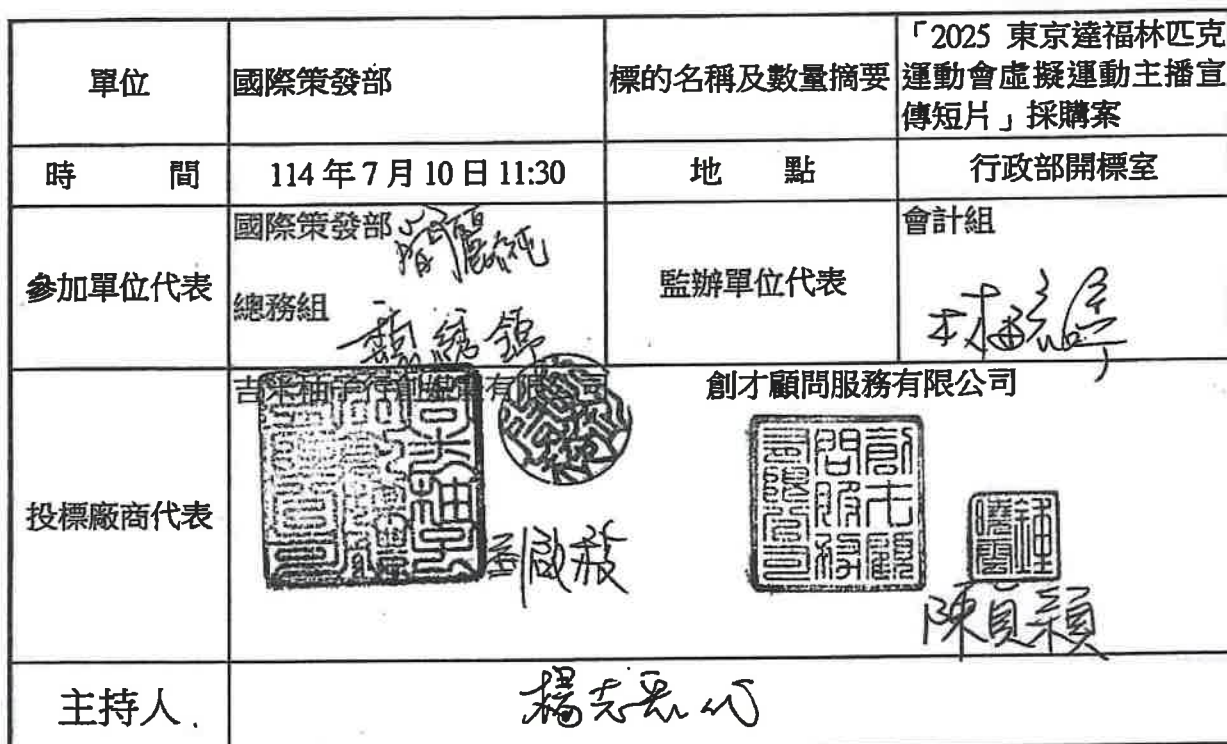 單位
國際策發部
標的名稱及數量摘要
「2025 東京達福林匹克
運動會虛擬運動主播宣
傳短片」採購案
時 間
114 年 7 月 10 日 11:30
地 點
行政部開標室
參加單位代表
國際策發部
總務組
監辦單位代表
會計組
投標廠商代表
有限公司
創才顧問服務有限公司
創才顧
問服務
有限公司
鍾
曉雲
陳貞穎
主持人